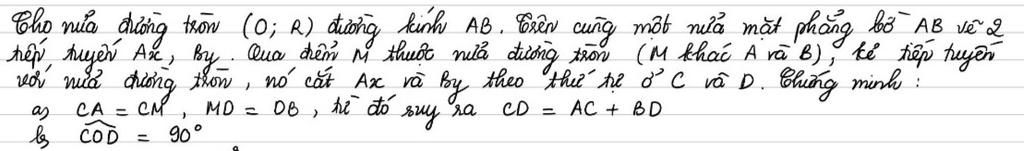 Cho nửa đường tròn (O; R) đường kính AB. Trên cùng một nửa mặt phẳng bờ AB vẽ 2
tiếp tuyến Ax, By. Qua điểm M thuộc nửa đường tròn (M khác A và B), kẻ tiếp tuyến
với nửa đường tròn, nó cắt Ax và By theo thứ tự ở C và D. Chứng minh :
a) CA = CM, MD = DB, từ đó suy ra CD = AC + BD
b) \widehat{COD} = 90°